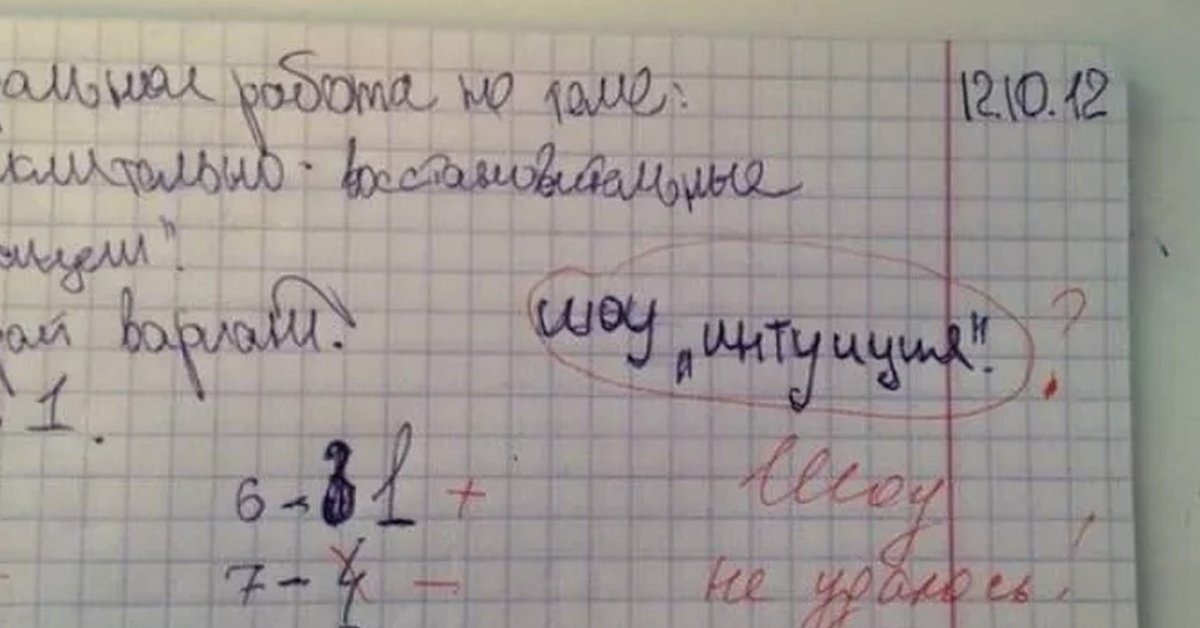 альная работа по теме:
12.10.12
ительно-восстановительные
акции".
ой вариант.
шоу „интуиция".
?
1.
6 - 1 +
Шоу
7 - 4 -
не удалось!